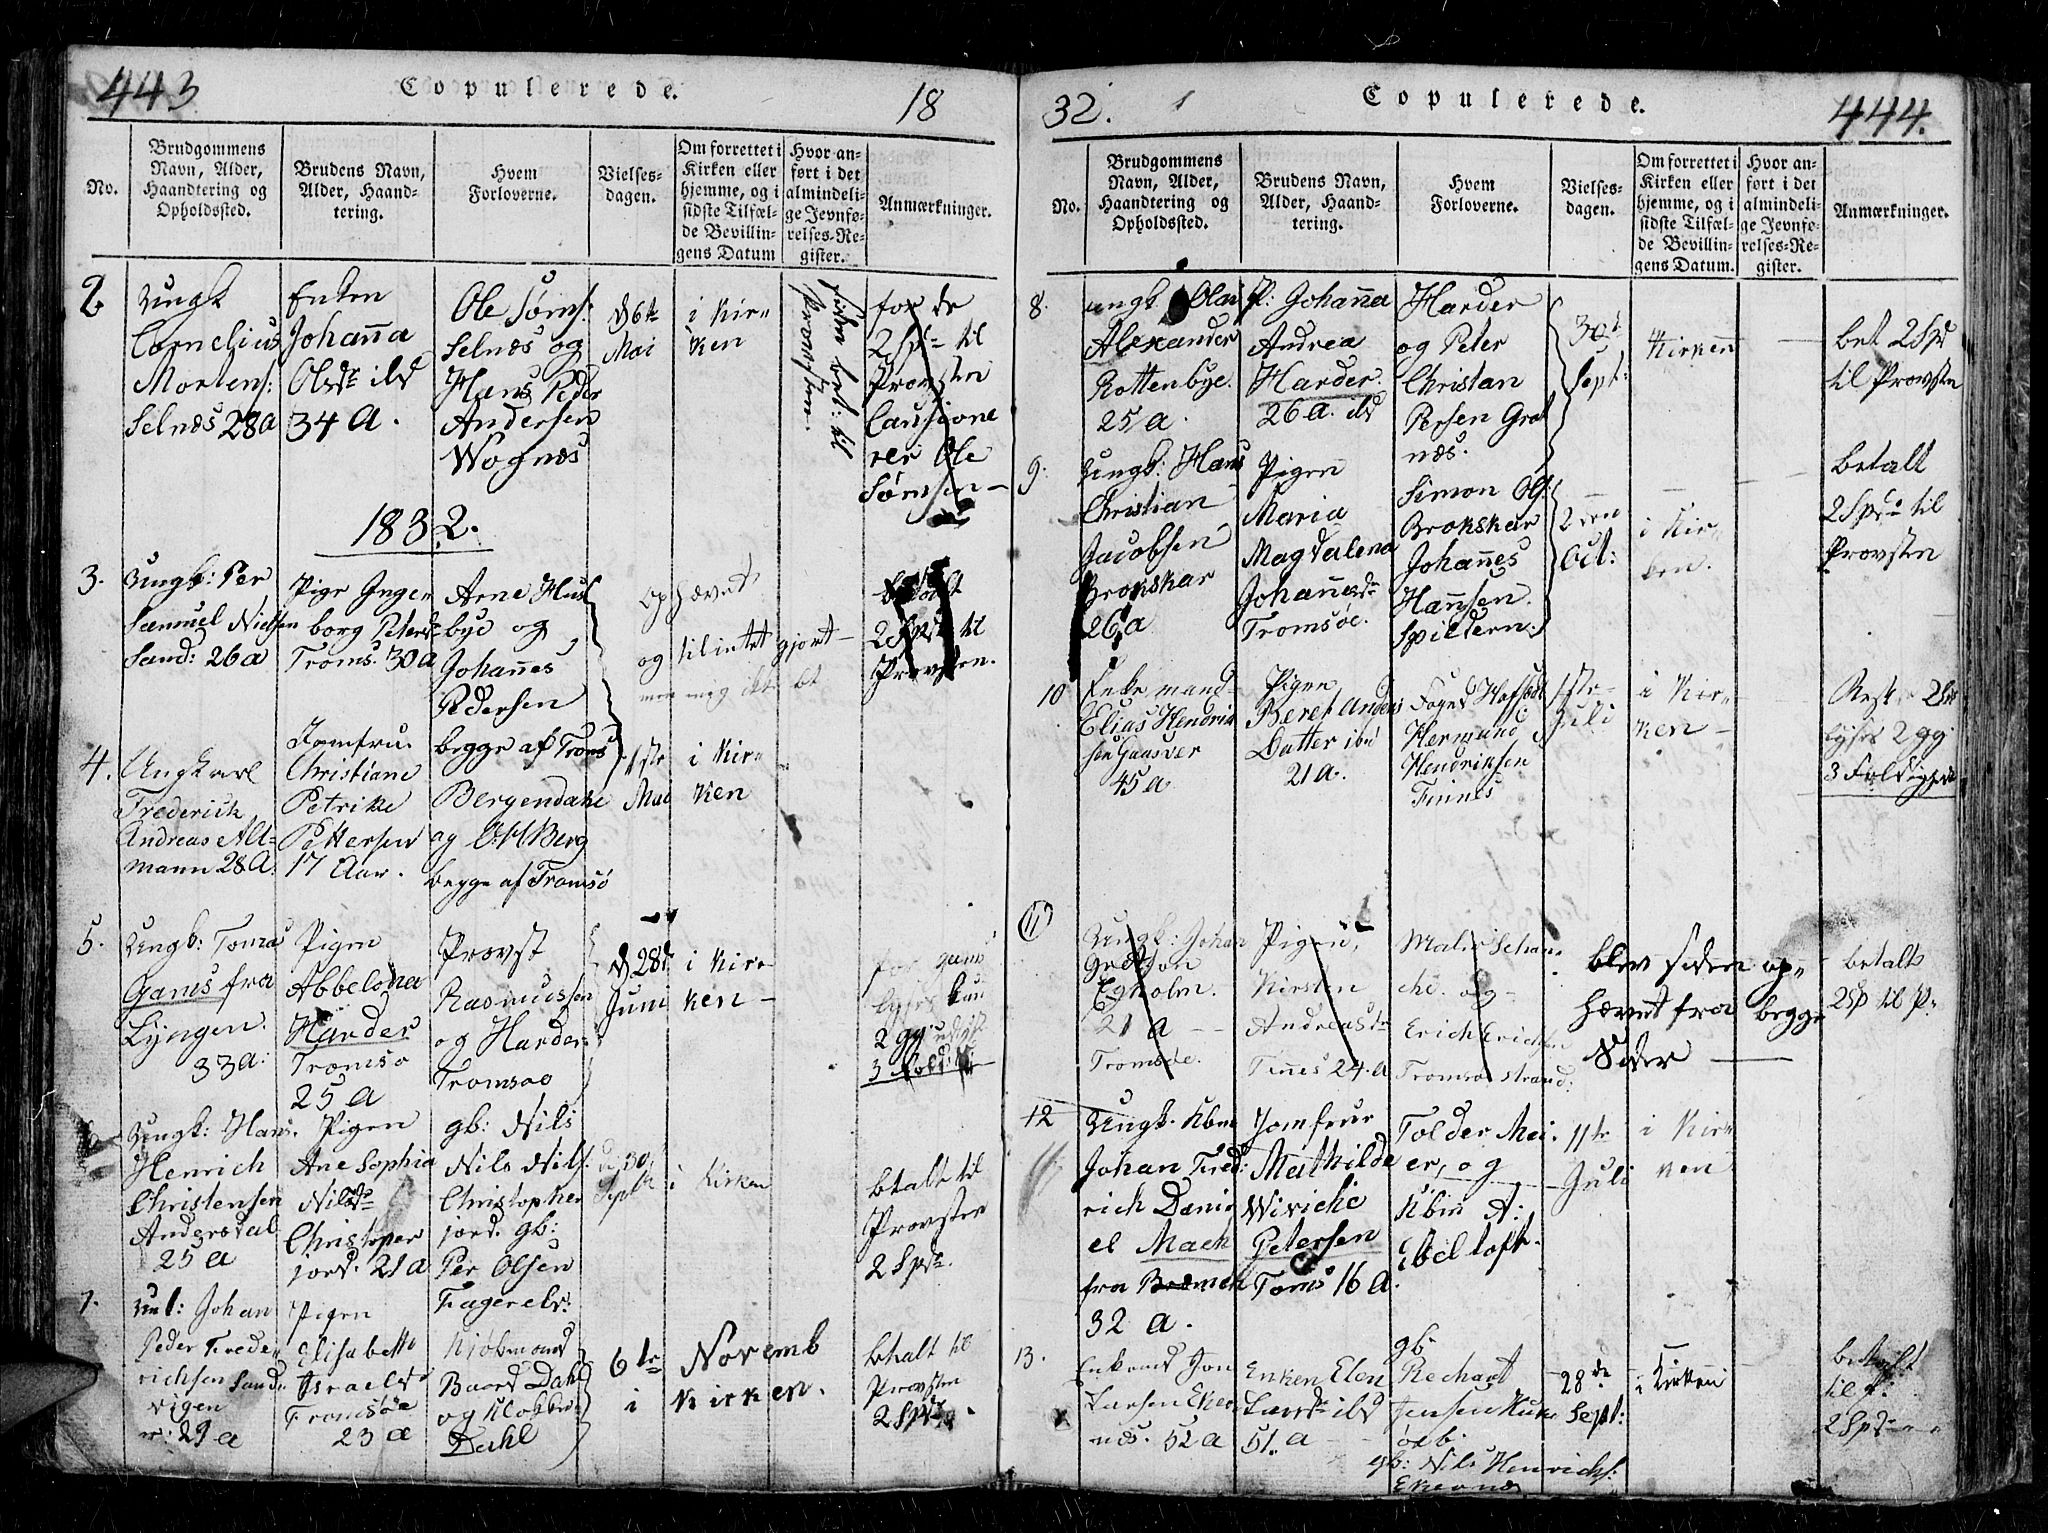 443 Copulerede. 18
No.
Brudgommens
Navn, Alder,
Haandtering og
Opholdssted.
Brudens Navn,
Alder, Haand-
tering.
Hvem
Forloverne.
Vielses-
dagen.
Om forrettet i
Kirken eller
hjemme, og i
sidste Tilfæl-
de Bevillin-
gens Datum
Hvor an-
ført i det
almindeli-
ge Jevnfø-
relses-Re-
gister.
Anmærkninger.
2.
Ungk
Cornelius
Mortens:
Selnæs 28 a
Enken
Johanna
Olsdr ibd
34 A.
Ole Søms:
Selnæs og
Hans Peder
Andersen
Wognæs
d 6te
Mai
i Kir=
ken
siden bet: til
Provsten.
for de
2 Spd til
Provsten
Causione
rer Ole
Sømsen
1832.
3.
Ungk: Per
Samuel Nielsen
Sand: 26 a
Pige Inge=
borg Petersd
Troms. 30 a
Arne Hus
bye og
Johannes
Pedersen
begge af Troms
Ophævet
og tilintet gjort
betalt
2 Spd til
Provsten.
4.
Ungkarl
Frederick
Andreas Alt-
mann 28 A.
Jomfru
Christiane
Petrike
Pettersen
17 Aar.
Bergendahl
og Berg
begge af Tromsö
1ste
Mai
i Kir=
ken
5.
Ungk: Tomas
Gams fra
Lyngen.
33 a:
Pigen
Abbelona
Harder
Tromsø
25 a
Provst
Rasmussen
og Harder
Tromsøe
d 28d
Juni
i Kir=
ken
2 gg
Ungk: Hans
Henrich
Christensen
Andersdal
25 a
Pigen
Ane Sophia
Nilsd
Christopher
jord. 21 a
gb: Nils
Nils Nils:
Christopher
jord. gb:
Per Olsen
Fagerels:
30
Septb
i Kirken
betalt til
Provsten
2 Spd.
7.
Johan
Peder Frede
richsen Sand=
vigen
29 a
Pigen
Elisabeth
Israelsd
Tromsøe
23 a
Kiøbmand
Baard Dahl
og Klokker
Dahl
6te Novemb
i Kirken.
betalt til
Provsten
2 Spd.
32. Copulerede. 444.
No.
Brudgommens
Navn, Alder,
Haandtering og
Opholdssted.
Brudens Navn,
Alder, Haand-
tering.
Hvem
Forloverne.
Vielses-
dagen.
Om forrettet i
Kirken eller
hjemme, og i
sidste Tilfæl-
de Bevillin-
gens Datum.
Hvor an-
ført i det
almindeli-
ge Jevnfø-
relses-Re-
gister.
Anmærkninger.
8.
ungk Olai
Alexander
Rottenbye.
25 a.
P: Johanna
Andrea
Harder.
26 a. ibd
Harder
og Peter
Christan
Persen Grot
næs.
30te
Sept:
Kirken
bet 2 Spd
til Provsten
9.
Ungk: Hans
Christian
Jacobsen
Brokskar
26 a
Pigen
Maria
Magdalena
Johannesdr
Tromsøe.
Simon Ols:
Brokskar
Johannes
Hannsen.
Spildern.
2den
Oct:
i Kir=
ken.
betalt
2 Spd til
Provsten
10
Enke mand
Elias Hendrik
sen Gaasver
45 a
Pigen
Beret Anders
Datter ibd
21 a.
Foged
Hermand
Hendriksen
Finnes
1ste
Juli
i Kir=
ken
2 gg
11
Ungk: Johan
Egholm.
21 a
Tromsøe.
Pigen,
Kirsten
Andreasdr
Finnes 24. a
og
Erich Erichsen
Tromsøestrand:
blev siden op=
hævet fra begge
Sider
betalt
2 Sp til P.
12
Ungk. Kbm
Johan Fred:
rich Dani
el Mack
fra
32 a.
Jomfrue
Mathilde
Wiviche
Petersen
Toms 16 A.
Tolder Mei
er, og
Kbm A:
Ebeltoft.
11te
Juli
i Kir=
ken
13.
Enkemd Jon
Larsen Eker
næs. 52 a
Enken Elen
Larsdr ibd
51. a
gb
Rechart
Jensen
gb: Nils Henrichs:
Ekernæs
28de
Sept:
i Kirken
betalt
til P:
2 Spd